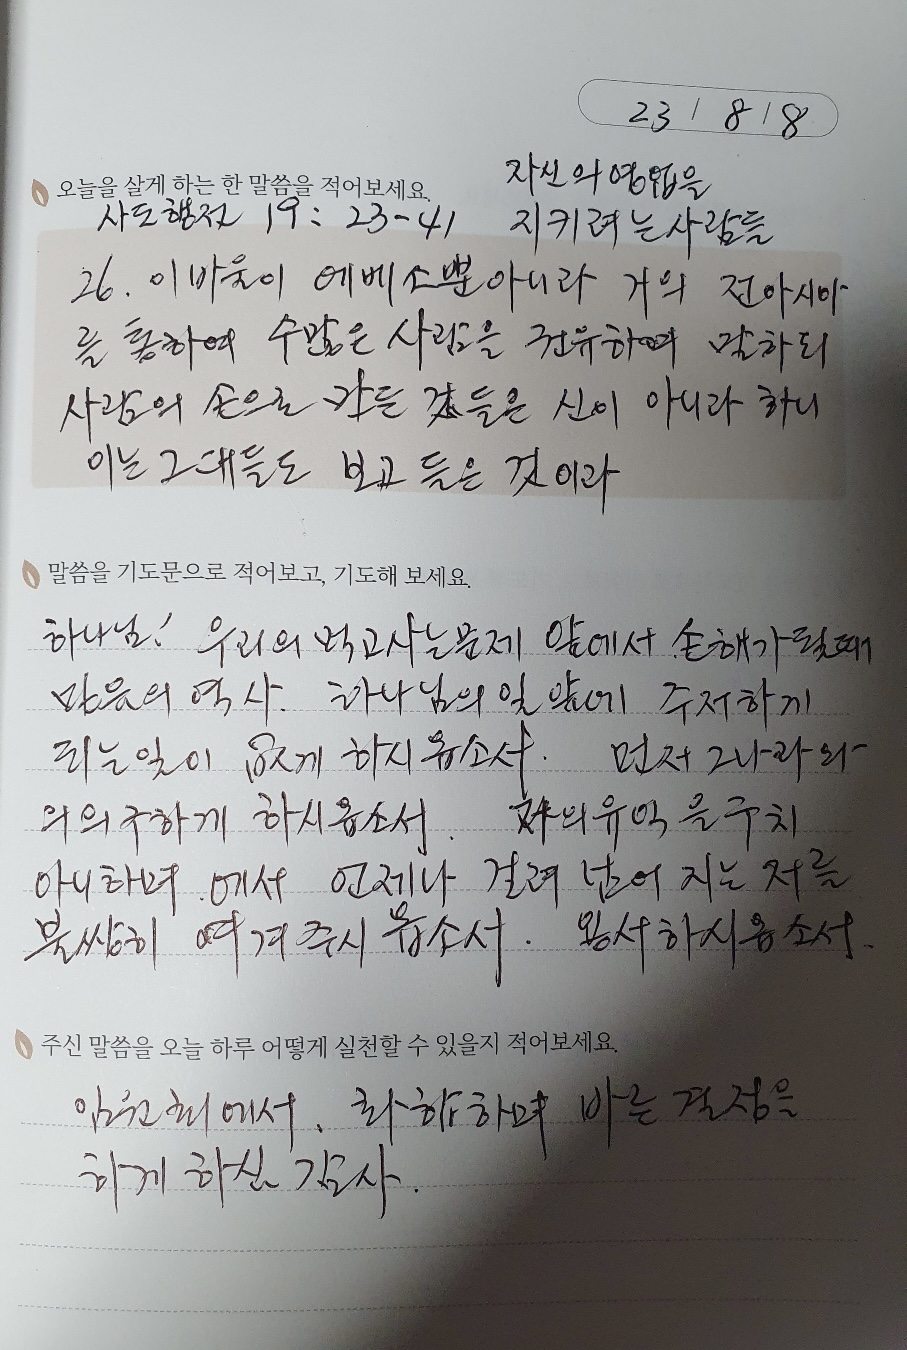 23 / 8 / 8
오늘을 살게 하는 한 말씀을 적어보세요.
자신의 영업을
사도행전 19: 23-41 지키려는 사람들
26. 이 바울이 에베소뿐 아니라 거의 전 아시아
를 통하여 수많은 사람을 권유하여 말하되
사람의 손으로 만든 것들은 신이 아니라 하니
이는 그대들도 보고 들은 것이라
말씀을 기도문으로 적어보고, 기도해 보세요.
하나님! 우리의 먹고사는 문제 앞에서 손해가 될때
마음의 역사. 하나님의 일 앞에 주저하게
되는 일이 없게 하시옵소서. 먼저 그 나라와
의의 구하게 하시옵소서. 의 유익을 구치
아니하며 에서 언제나 걸려 넘어 지는 저를
불쌍히 여겨 주시옵소서. 용서하시옵소서.
주신 말씀을 오늘 하루 어떻게 실천할 수 있을지 적어보세요.
임원회에서, 화합하며 바른 결정을
하게 하심 감사.